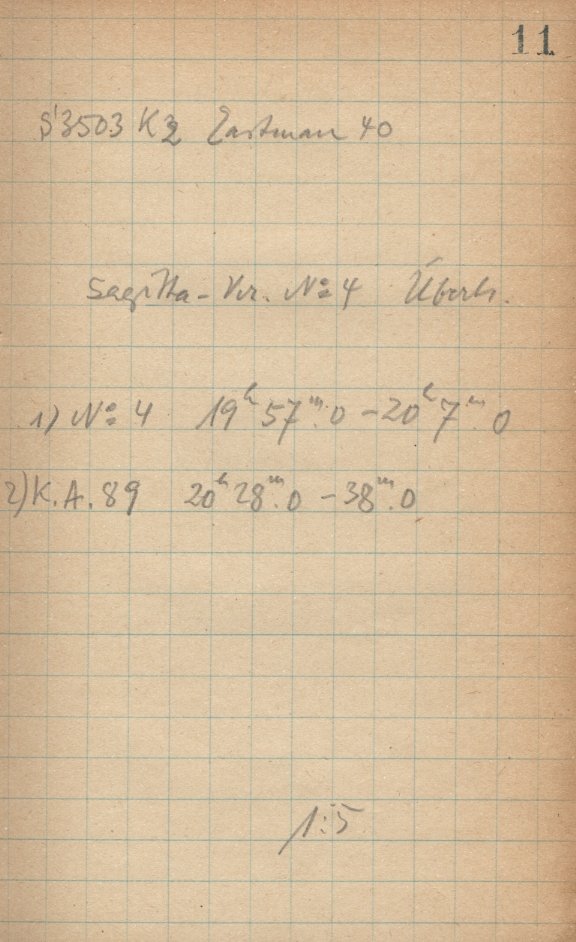 11
S 3503 K2 Eastman 40
Sagitta-Ver. No 4
1) No 4 19h 57m.0 - 20h 7m.0
2) K.A. 89 20h 28m.0 - 38m.0
1:5